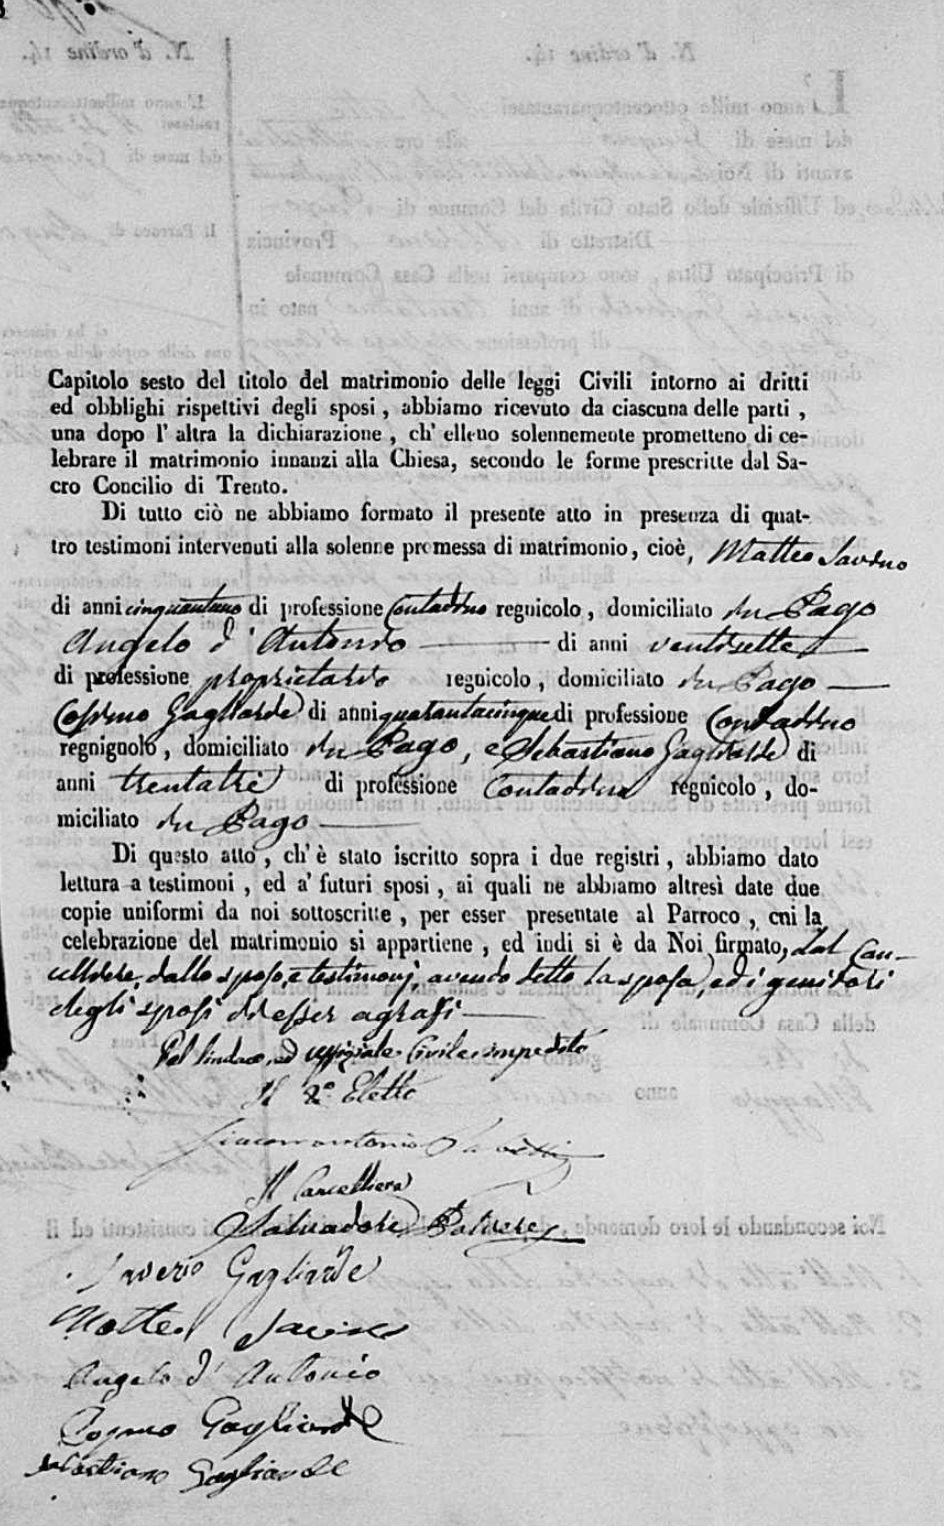 Capitolo sesto del titolo del matrimonio delle leggi Civili intorno ai dritti
ed obblighi rispettivi degli sposi, abbiamo ricevuto da ciascuna delle parti,
una dopo l'altra la dichiarazione, ch'elleno solennemente promettono di ce-
lebrare il matrimonio innanzi alla Chiesa, secondo le forme prescritte dal Sa-
cro Concilio di Trento.
Di tutto ciò ne abbiamo formato il presente atto in presenza di quat-
tro testimoni intervenuti alla solenne promessa di matrimonio, cioè, Matteo Savino
di anni cinquantuno di professione Contadino regnicolo, domiciliato in Pago
Angelo d'Antonio di anni ventisette
di professione proprietario regnicolo, domiciliato in Pago
Cosimo Gagliarde di anni quarantacinque di professione Contadino
regnignolo, domiciliato in Pago, e Sebastiano Gagliarde di
anni trentatre di professione Contadino regnicolo, do-
miciliato in Pago
Di questo atto, ch'è stato iscritto sopra i due registri, abbiamo dato
lettura a testimoni, ed a' futuri sposi, ai quali ne abbiamo altresì date due
copie uniformi da noi sottoscritte, per esser presentate al Parroco, cui la
celebrazione del matrimonio si appartiene, ed indi si è da Noi firmato, dal Can-
celliere, dallo sposo, e testimonj, avendo detto la sposa, ed i genitori
degli sposi di esser agrassi
Pel Sindaco, ed Uffiziale Civile impedito
Il 2° Eletto
Giacomantonio
Il Cancelliere
Salvadore Polvere
Saverio Gagliarde
Matteo Savino
Angelo d'Antonio
Cosmo Gagliarde
Sebastiano Gagliarde